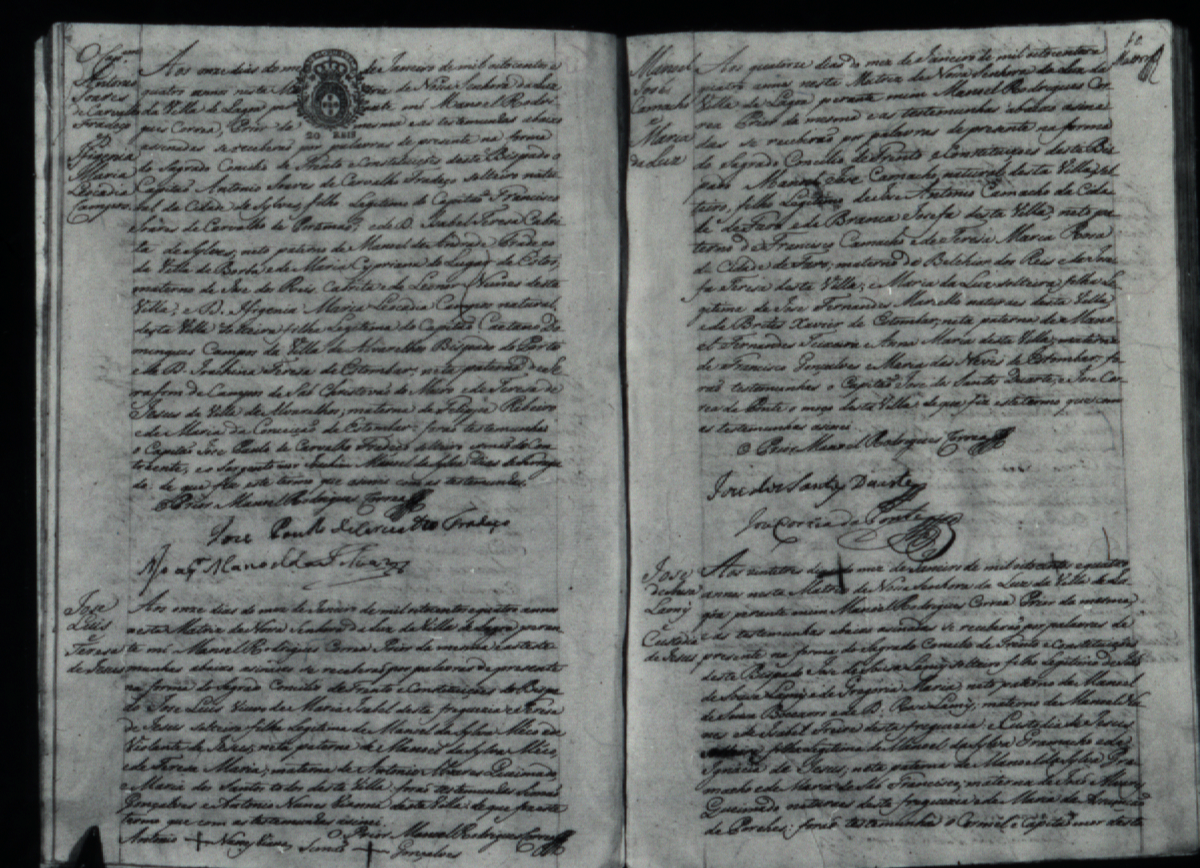 Cap.am
Antonio
Soares
de Carvalho
Fradeço
e
Ifigenia
Maria
Leocadia
Campos
Aos onze dias do mez de Janeiro de mil oitocentos e
quatro annos nesta Matriz de Nossa Senhora da Luz
da Villa de Lagoa perante mim Manoel Rodri-
gues Correa, Prior da mesma e as testemunhas abaixo
assinadas se receberão por palavras de presente na forma
do Sagrado Concilio de Trento e Constituições deste Bispado o
Capitão Antonio Soares de Carvalho Fradeço solteiro natu-
ral da Cidade de Sylves, filho legitimo do Capitão Francisco
de Carvalho de e de D. Isabel Teresa Cabri-
ta de Sylves, neto paterno de Manoel de Andrade Fradeço
da Villa de Borba e de Maria Cypriana do Lugar de Estoi,
materno de Jose dos Reis Cabrita e de Leonor Nunes desta
Villa; e D. Ifigenia Maria Leocadia Campos natural
desta Villa solteira filha legitima do Capitão Caetano Do-
mingues Campos da Villa de Alvarelhos Bispado do Porto
e de D. Joachina Teresa de Estombar, neta paterna de Se-
rafim de Campos de São Christovão do Muro e de Teresa de
Jesus da Villa de Alvarelhos, materna de Felippe Ribeiro
e de Maria da Conceição de Estombar: forão testemunhas
o Capitão Jose Paulo de Carvalho Fradeço solteiro irmão do Con-
trahente, e o Sargento mor Joachim Manoel da Sylva
de que fiz este termo que assinei com as testemunhas.
O Prior Manoel Rodrigues Correa
Jose Paullo de Carvalho Fradeço
Joaq.m Manoel da S.a
20 REIS
Jose
Luis
e
Teresa
de Jesus
Aos onze dias do mez de Janeiro de mil oitocentos e quatro annos
nesta Matriz de Nossa Senhora da Luz da Villa de Lagoa peran-
te mim Manoel Rodrigues Correa Prior da mesma e as teste-
munhas abaixo assinadas se receberão por palavras de presente
na forma do Sagrado Concilio de Trento e Constituições do Bispa-
do Jose Luis Viuvo de Maria Isabel desta freguezia e Teresa
de Jesus solteira filha legitima de Manoel da Sylva Mico e de
Violante de Jesus, neta paterna de Manoel da Sylva Mico,
e de Teresa Maria; materna de Antonio Alvares Queimado,
e Maria dos Santos todos desta Villa: forão testemunhas Simão
Gonçalves e Antonio Nunes Vianna desta Villa: de que fiz este
termo que com as testemunhas assinei.
O Prior Manoel Rodrigues Correa
Antonio + Nunes Vianna Simão + Gonçalves
10
Manoel
Jose
Camacho
e
Maria
da Luz
Aos quatorze dias do mez de Janeiro de mil oitocentos e
quatro annos nesta Matriz de Nossa Senhora da Luz da
Villa de Lagoa perante mim Manoel Rodrigues Cor-
rea Prior da mesma e as testemunhas abaixo assina-
das se receberão por palavras de presente na forma
do Sagrado Concilio de Trento e Constituições deste Bis-
pado Manoel Jose Camacho, natural desta Villa, sol-
teiro, filho legitimo de Jose Antonio Camacho da Cida-
de de Faro e de Branca Josefa desta Villa, neto pa-
terno de Francisco Camacho e de Teresa Maria Rosa
da Cidade de Faro; materno de Belchior dos Reis e de Jose-
fa Teresa desta Villa; e Maria da Luz solteira, filha le-
gitima de Jose Fernandes Marcello natural desta Villa,
e de Brites Xavier de Estombar, neta paterna de Mano-
el Fernandes Teixeira e Anna Maria desta Villa, materna
de Francisco Gonçalves e Maria das Neves de Estombar: fo-
rão testemunhas o Capitão Jose dos Santos Duarte, e Jose Cor-
rea da Ponte o moço desta Villa: de que fiz este termo que com
as testemunhas assinei
O Prior Manoel Rodrigues Correa
Jose dos Santos Duarte
Jose Correia da Ponte
Jose
de Sousa
Leiny
e
Custodia
de Jesus
Aos vinte tres dias do mez de Janeiro de mil oitocentos e quatro
annos nesta Matriz de Nossa Senhora da Luz da Villa de La-
goa perante mim Manoel Rodrigues Correa Prior da mesma,
e as testemunhas abaixo assinadas se receberão por palavras de
presente na forma do Sagrado Concilio de Trento e Constituições
deste Bispado Jose de Sousa Leiny solteiro filho legitimo de
de Sousa Leiny e de Gregoria Maria, neto paterno de Manoel
de Sousa e de D. Rosa Leiny, materno de Manoel
e de Isabel Freire desta freguezia e Custodia de Jesus
filha legitima de Manoel da Sylva Gramacho e de
Ignacia de Jesus, neta paterna de Manoel da Sylva Gra-
macho e de Maria de São Francisco, materna de João
Queimado naturaes desta freguezia e de Maria da
de Porches: forão testemunhas o Coronel e Capitão mor desta